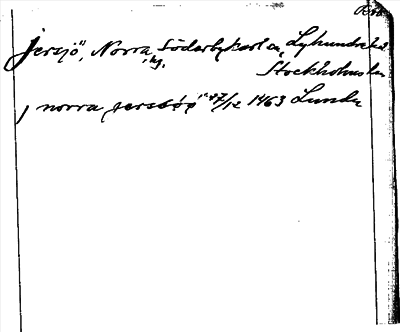 Jersjö, Norra, Söderbykarlen, Lyhundra hd
hg. Stockholms län
, norra jersöö" 27/12 1463 Lunda